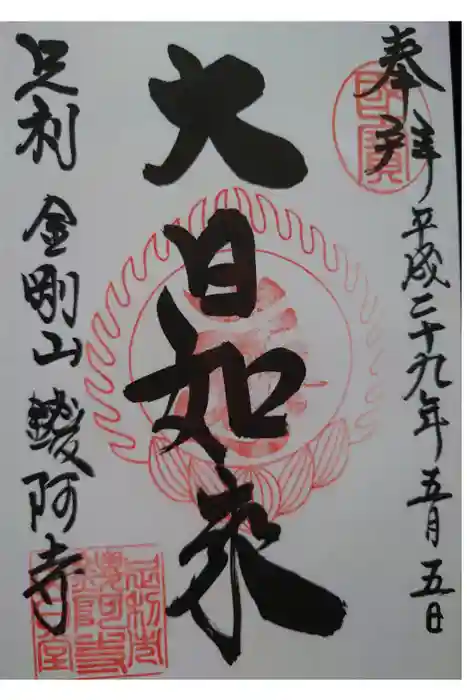 奉拝
平成二十九年五月五日
大日如来
足利 金剛山 鑁阿寺